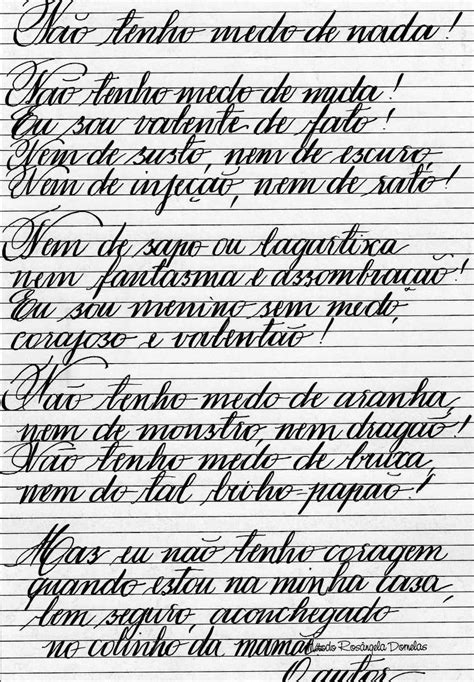 Não tenho medo de nada!
Não tenho medo de nada!
Eu sou valente de fato!
Nem de susto, nem de escuro,
Nem de injeção, nem de rato!
Nem de sapo ou lagartixa
nem fantasma e assombração!
Eu sou menino sem medo,
corajoso e valentão!
Não tenho medo de aranha,
nem de monstro, nem dragão!
Não tenho medo de bruxa
nem do tal bicho-papão!
Mas eu não tenho coragem,
quando estou na minha casa,
bem seguro, aconchegado
no colinho da mamãe
Método Rosângela Dornelas
O autor